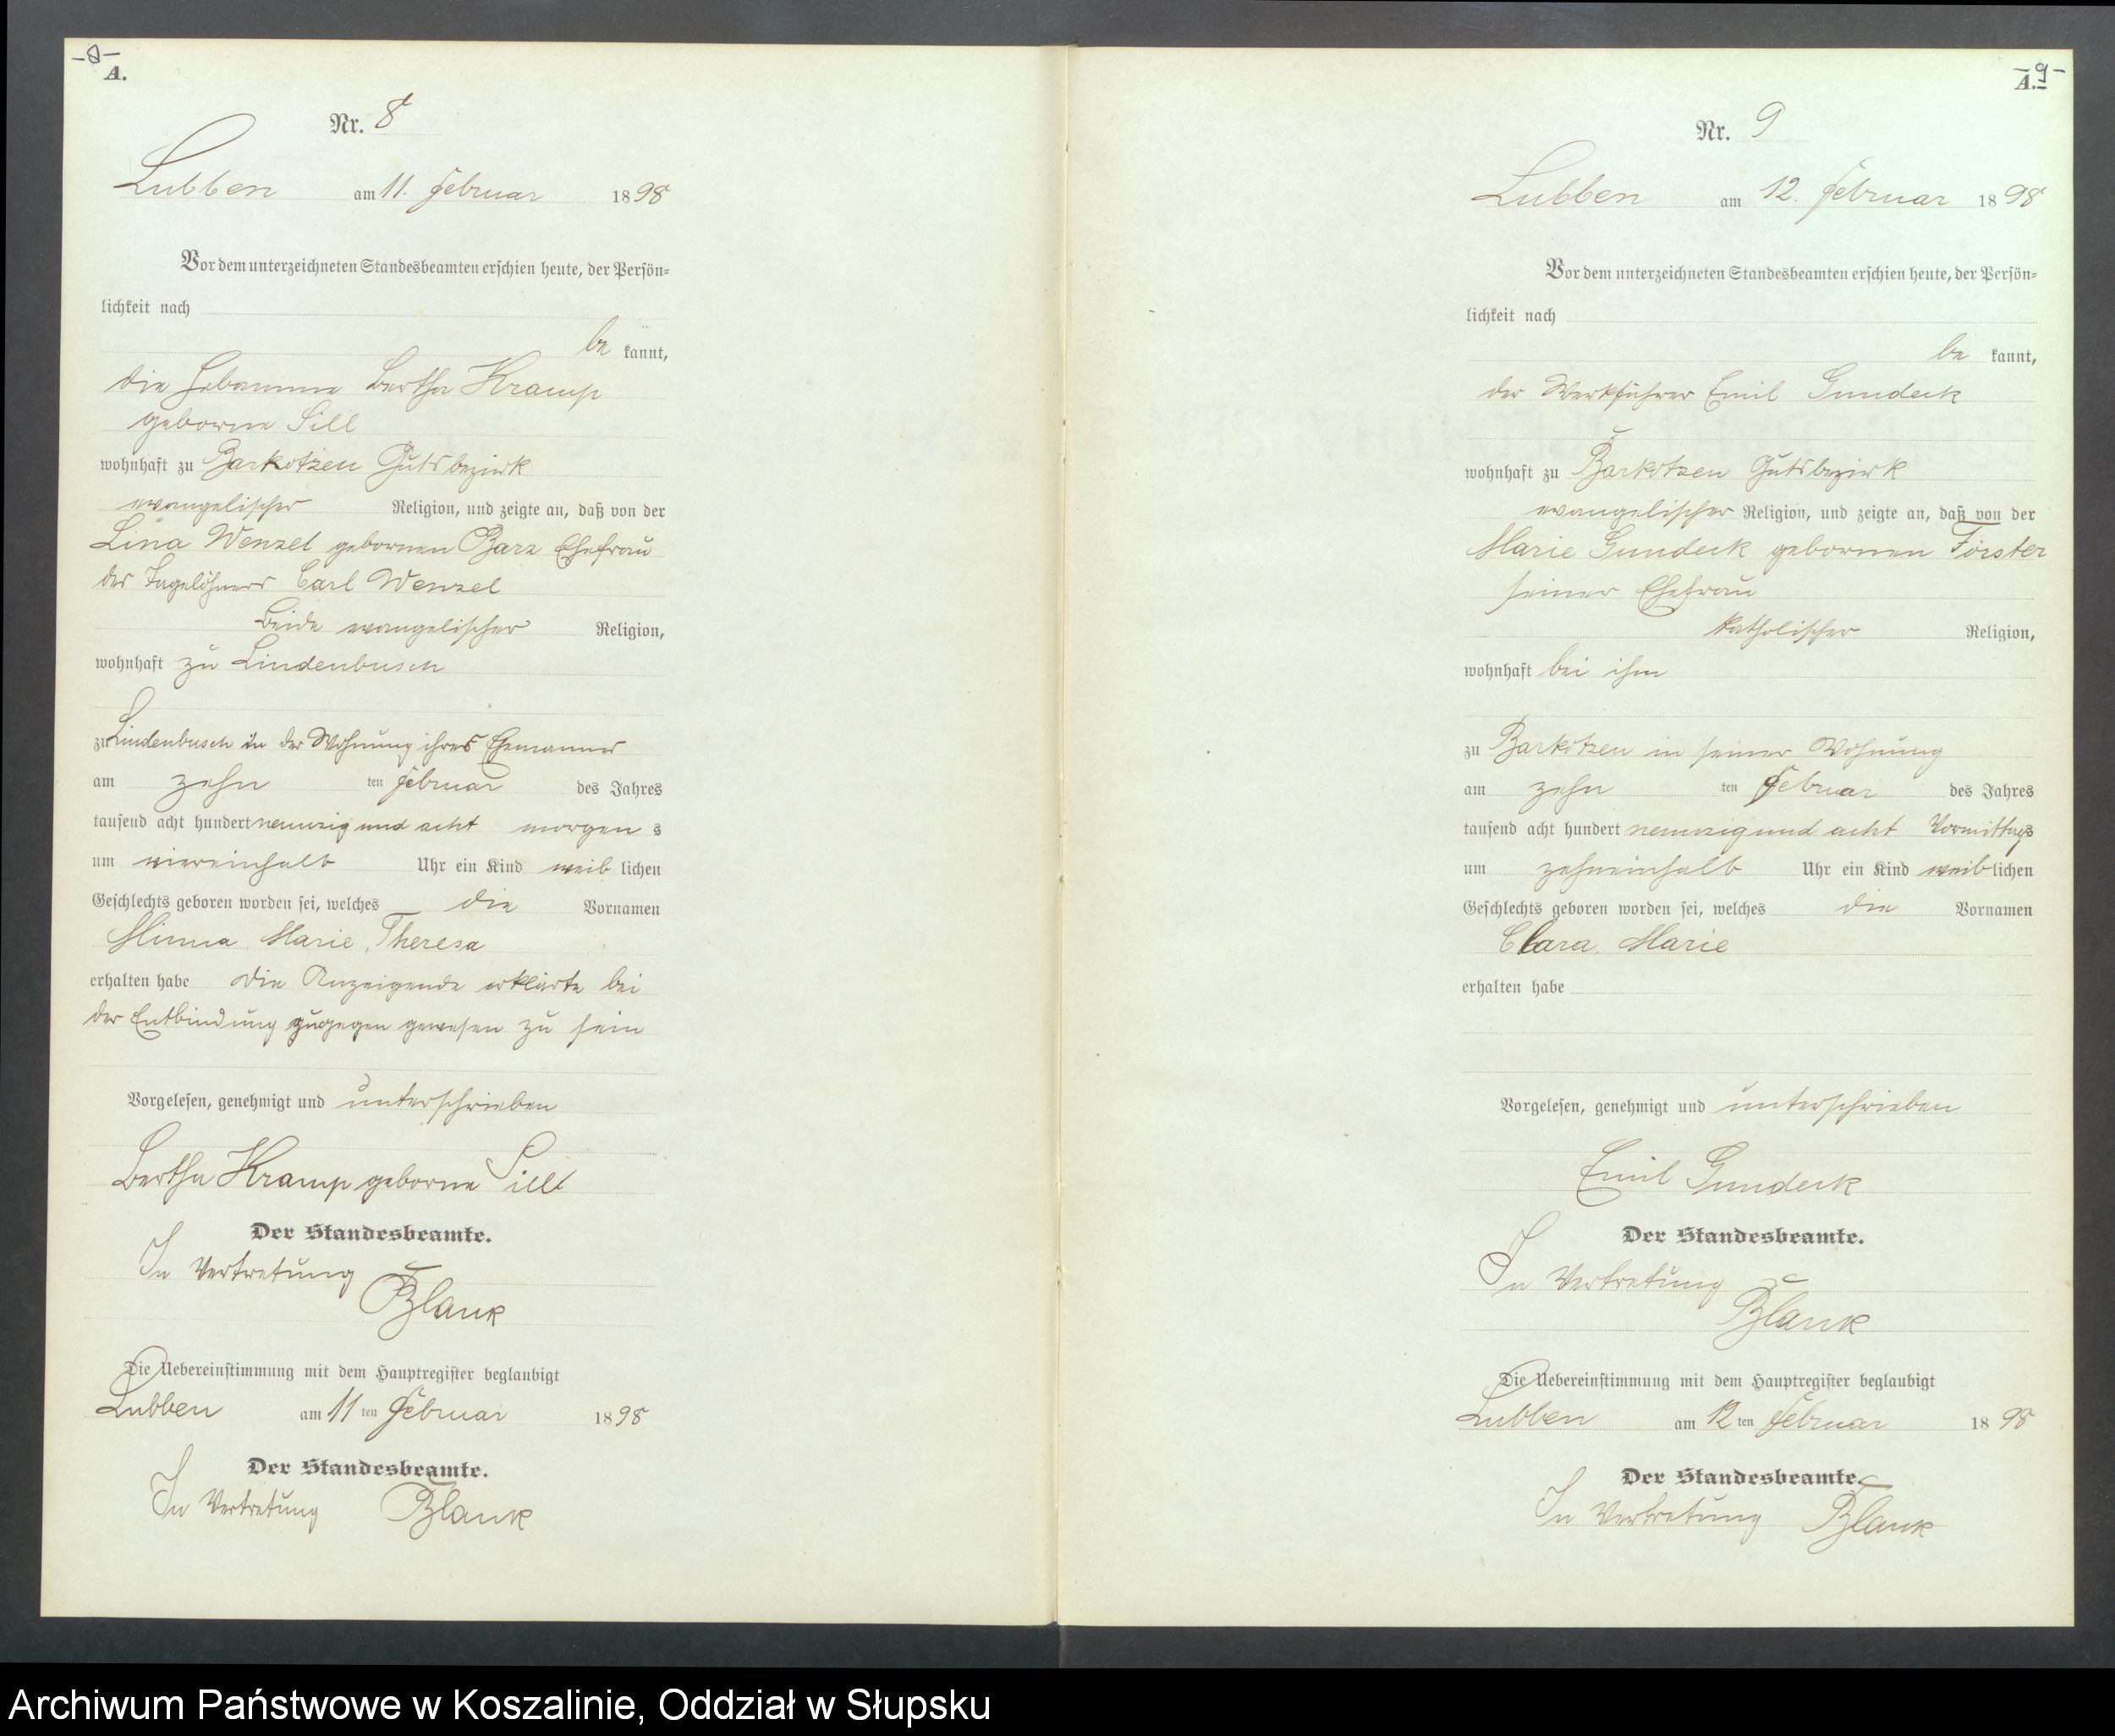 -8-
A.
Nr. 8
Lubben am 11. Februar 1898
Vor dem unterzeichneten Standesbeamten erschien heute, der Persön-
lichkeit nach
be kannt,
die Hebamme Bertha Kramp
geborne Sill
wohnhaft zu Barkotzen Gutsbezirk
evangelischer Religion, und zeigte an, daß von der
Lina Wenzel gebornen Barz Ehefrau
des Tagelöhners Carl Wenzel
Beide evangelischer Religion,
wohnhaft zu Lindenbusch
zu Lindenbusch in der Wohnung ihres Ehemannes
am zehn ten Februar des Jahres
tausend acht hundert neunzig und acht morgen s
um viereinhalb Uhr ein Kind weib lichen
Geschlechts geboren worden sei, welches die Vornamen
Minna, Marie, Theresa
erhalten habe Die Anzeigende erklärte bei
der Entbindung zugegen gewesen zu sein
Vorgelesen, genehmigt und unterschrieben
Bertha Kramp geborne Sill
Der Standesbeamte.
In Vertretung
Blank
Die Uebereinstimmung mit dem Hauptregister beglaubigt
Lubben am 11 ten Februar 1898
Der Standesbeamte.
In Vertretung Blank
-9-
A.
Nr. 9
Lubben am 12. Februar 1898
Vor dem unterzeichneten Standesbeamten erschien heute, der Persön-
lichkeit nach
be kannt,
der Werkführer Emil Gundeck
wohnhaft zu Barkotzen Gutsbezirk
evangelischer Religion, und zeigte an, daß von der
Marie Gundeck gebornen Förster
seiner Ehefrau
katholischer Religion,
wohnhaft bei ihm
zu Barkotzen in seiner Wohnung
am zehn ten Februar des Jahres
tausend acht hundert neunzig und acht Vormittags
um zehneinhalb Uhr ein Kind weib lichen
Geschlechts geboren worden sei, welches die Vornamen
Clara, Marie
erhalten habe
Vorgelesen, genehmigt und unterschrieben
Emil Gundeck
Der Standesbeamte.
In Vertretung
Blank
Die Uebereinstimmung mit dem Hauptregister beglaubigt
Lubben am 12 ten Februar 1898
Der Standesbeamte.
In Vertretung Blank
Archiwum Państwowe w Koszalinie, Oddział w Słupsku